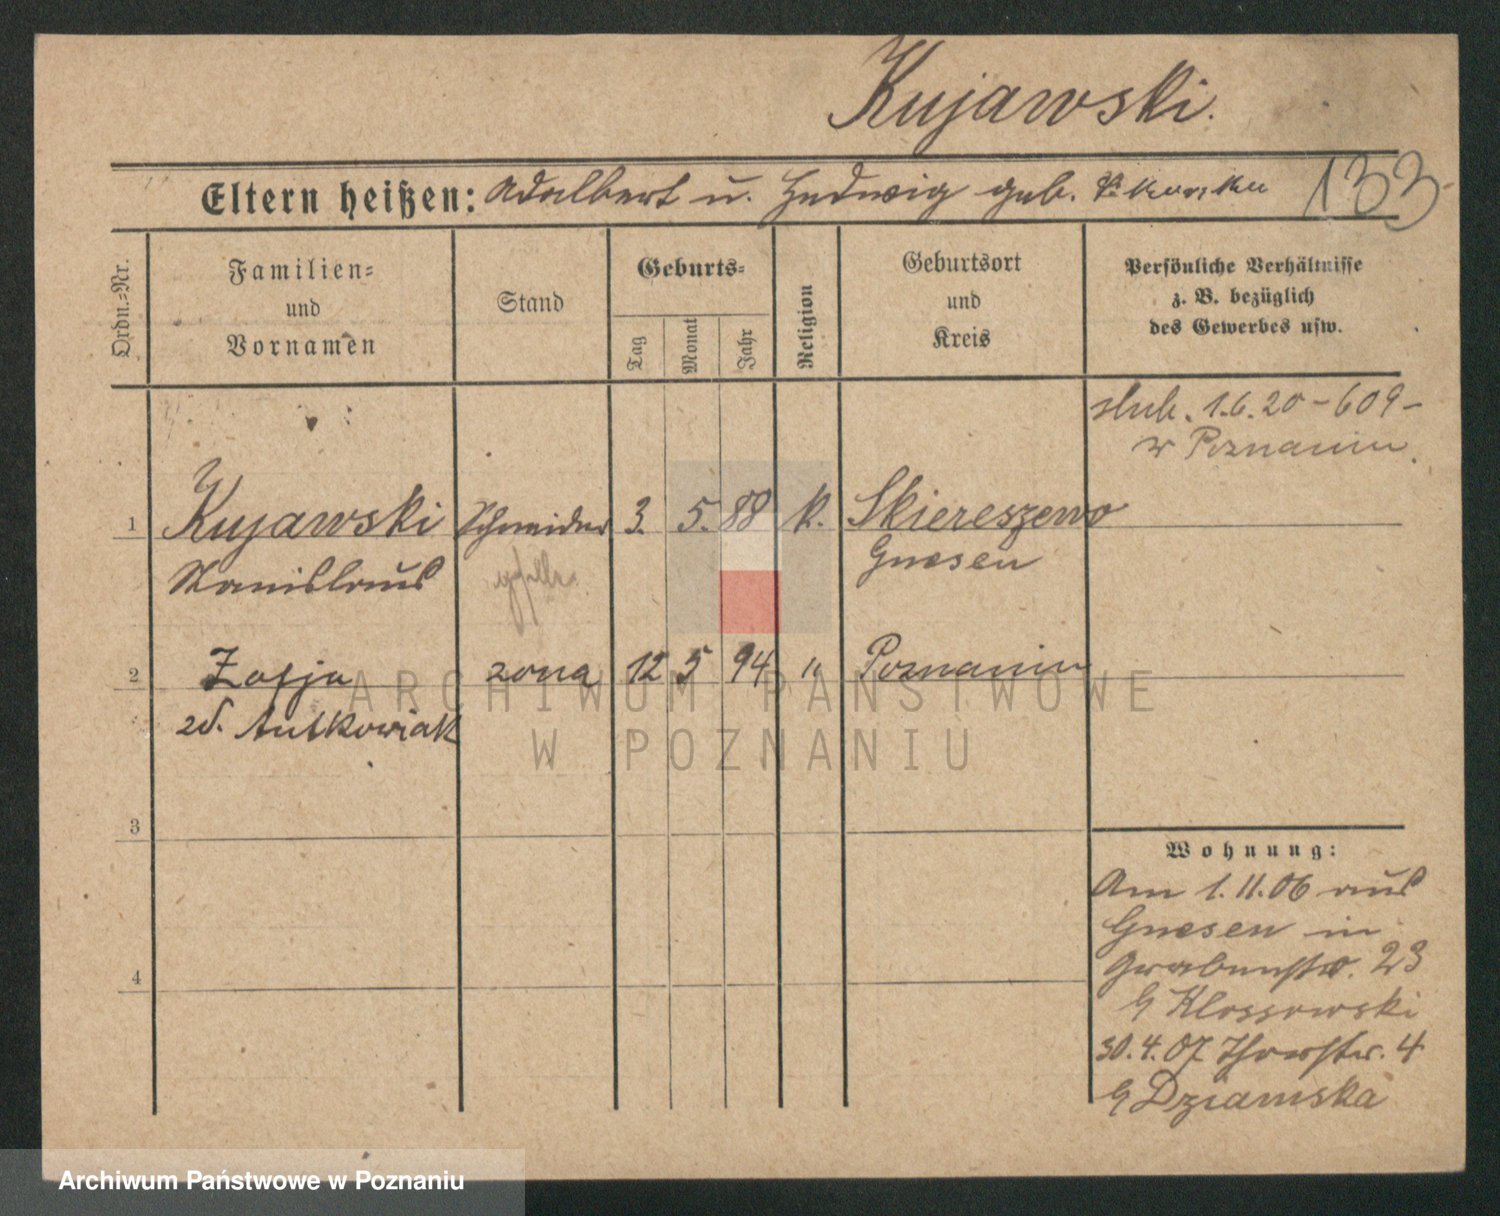 Kujawski.
Eltern heißen: Adalbert u. Hedwig geb.
133
Ordn.-Nr.
Familien-
und
Vornamen
Stand
Geburts-
Tag
Monat
Jahr
Religion
Geburtsort
und
Kreis
Persönliche Verhältnisse
z. B. bezüglich
des Gewerbes usw.
ślub. 1.6.20 - 609 -
w Poznaniu.
1 Kujawski Schneider 3. 5. 88 k. Skiereszewo
Stanislaus geselle Gnesen
2 Zofja żona 12 5 94 " Poznaniu
zd. Antkowiak
3
4
Wohnung:
Am 1.11.06 aus
Gnesen in
Grabenstr. 23
b/ Klossowski
30.4.07 Thorstr. 4
b/ Dziamska
ARCHIWUM PAŃSTWOWE
W POZNANIU
Archiwum Państwowe w Poznaniu